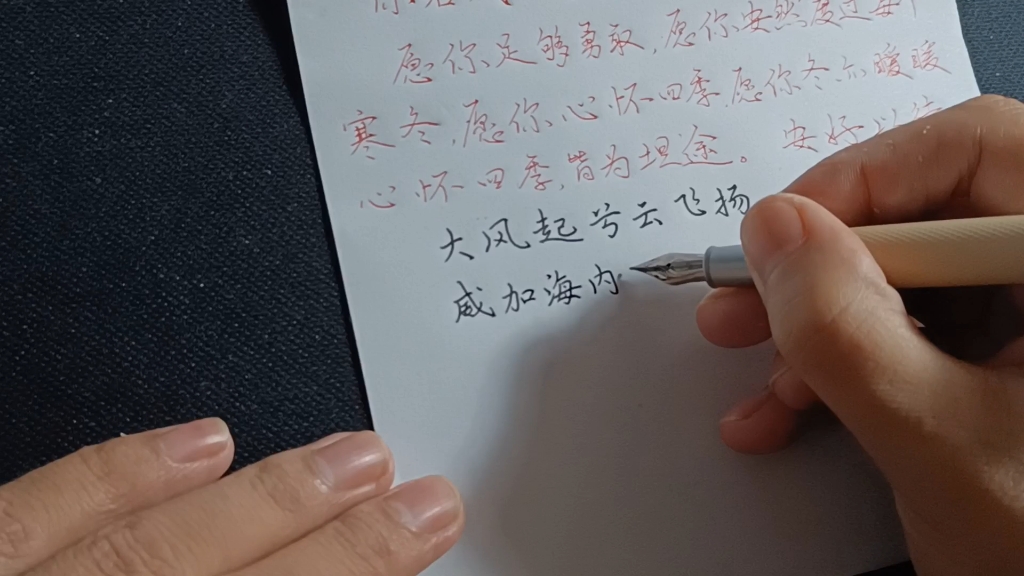 愿你足够勇敢,愿你安然度过每个
寒冬,愿你心怀四季,愿你冬亦暖暖
心怀四季,皆为坦途。 安好
大风起兮云飞扬
威加海内